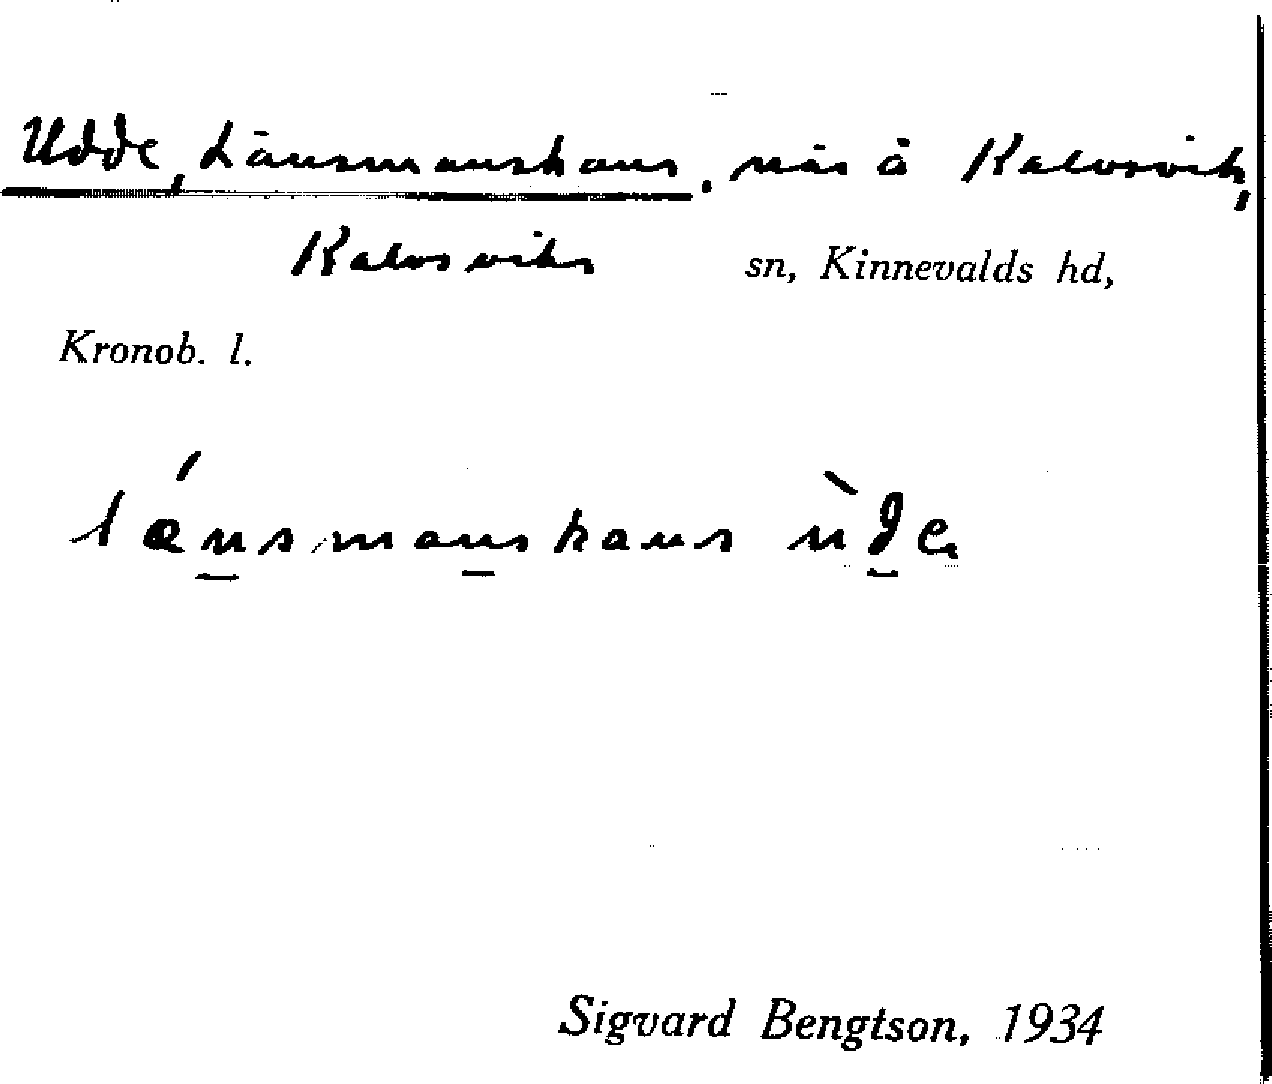 Udde, Länsmanshans, näs å Kalvsvik,
Kalvsviks sn, Kinnevalds hd,
Kronob. l.
lǽnsmanshans ùde
Sigvard Bengtson, 1934